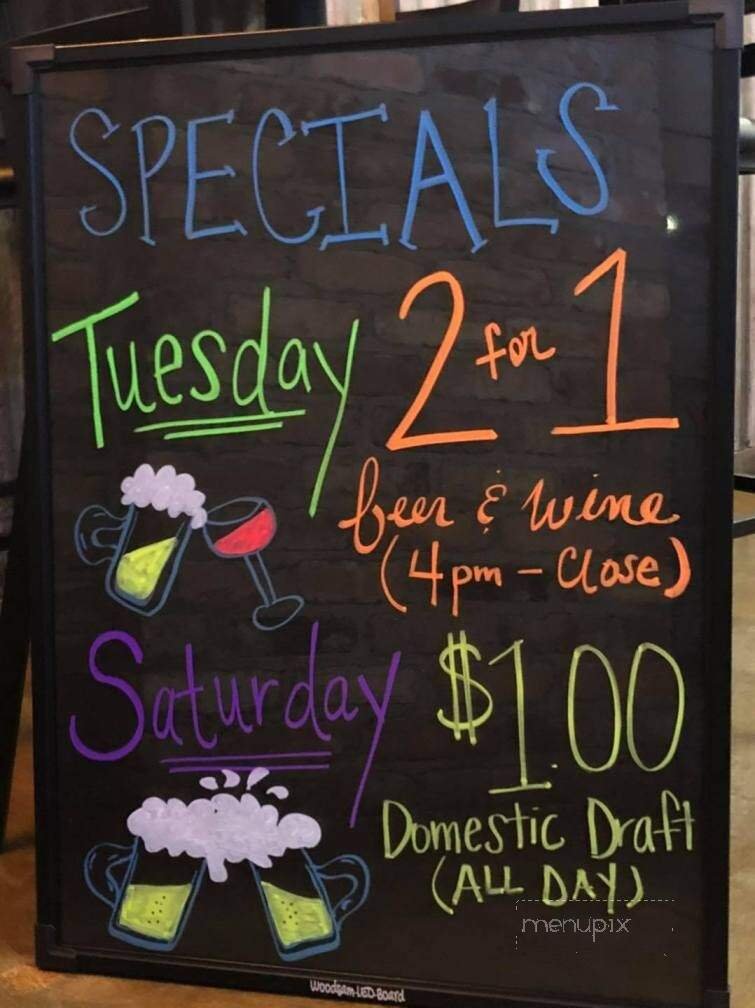 SPECIALS
Tuesday
2 for 1
beer & wine
(4pm - Close)
Saturday
$1.00
Domestic Draft
(ALL DAY)
menupix
Woodsam-LED-Board